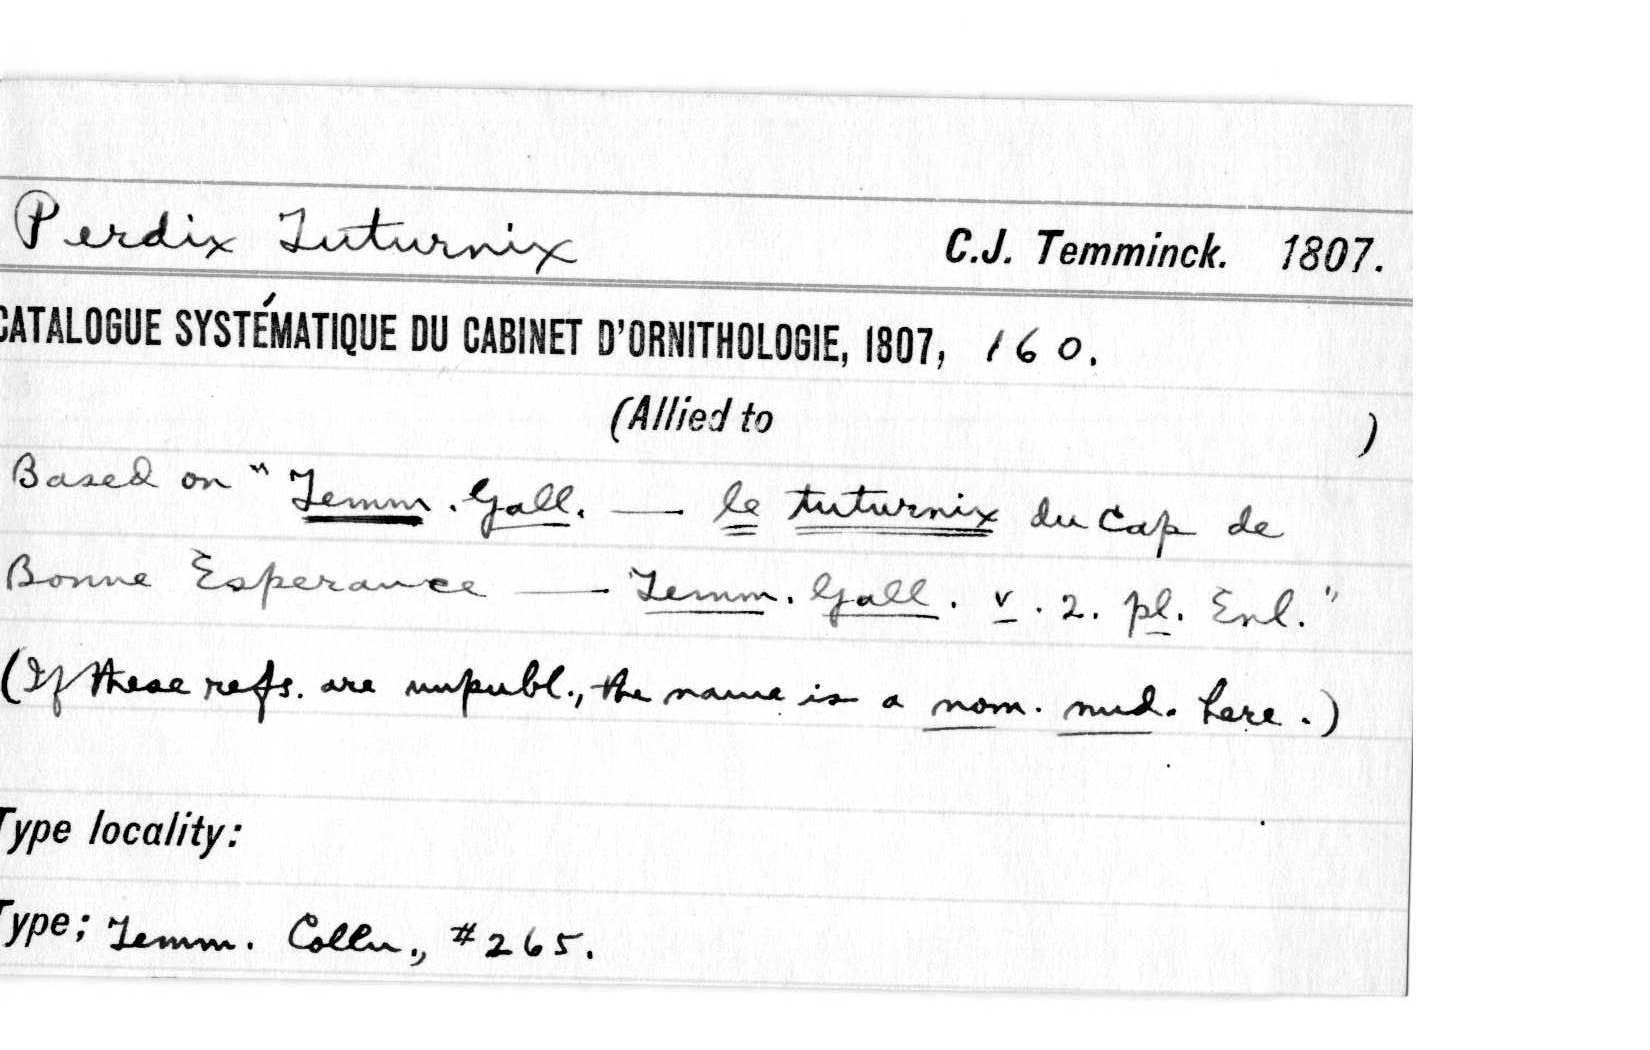 Perdix Tuturnix C.J. Temminck. 1807.
CATALOGUE SYSTÉMATIQUE DU CABINET D'ORNITHOLOGIE, 1807, 160.
(Allied to )
Based on "Temm. Gall. — le tuturnix du Cap de
Bonne Esperance — Temm. Gall. v. 2. pl. Enl."
(If these refs. are unpubl., the name is a nom. nud. here.)
Type locality:
Type; Temm. Colln., #265.